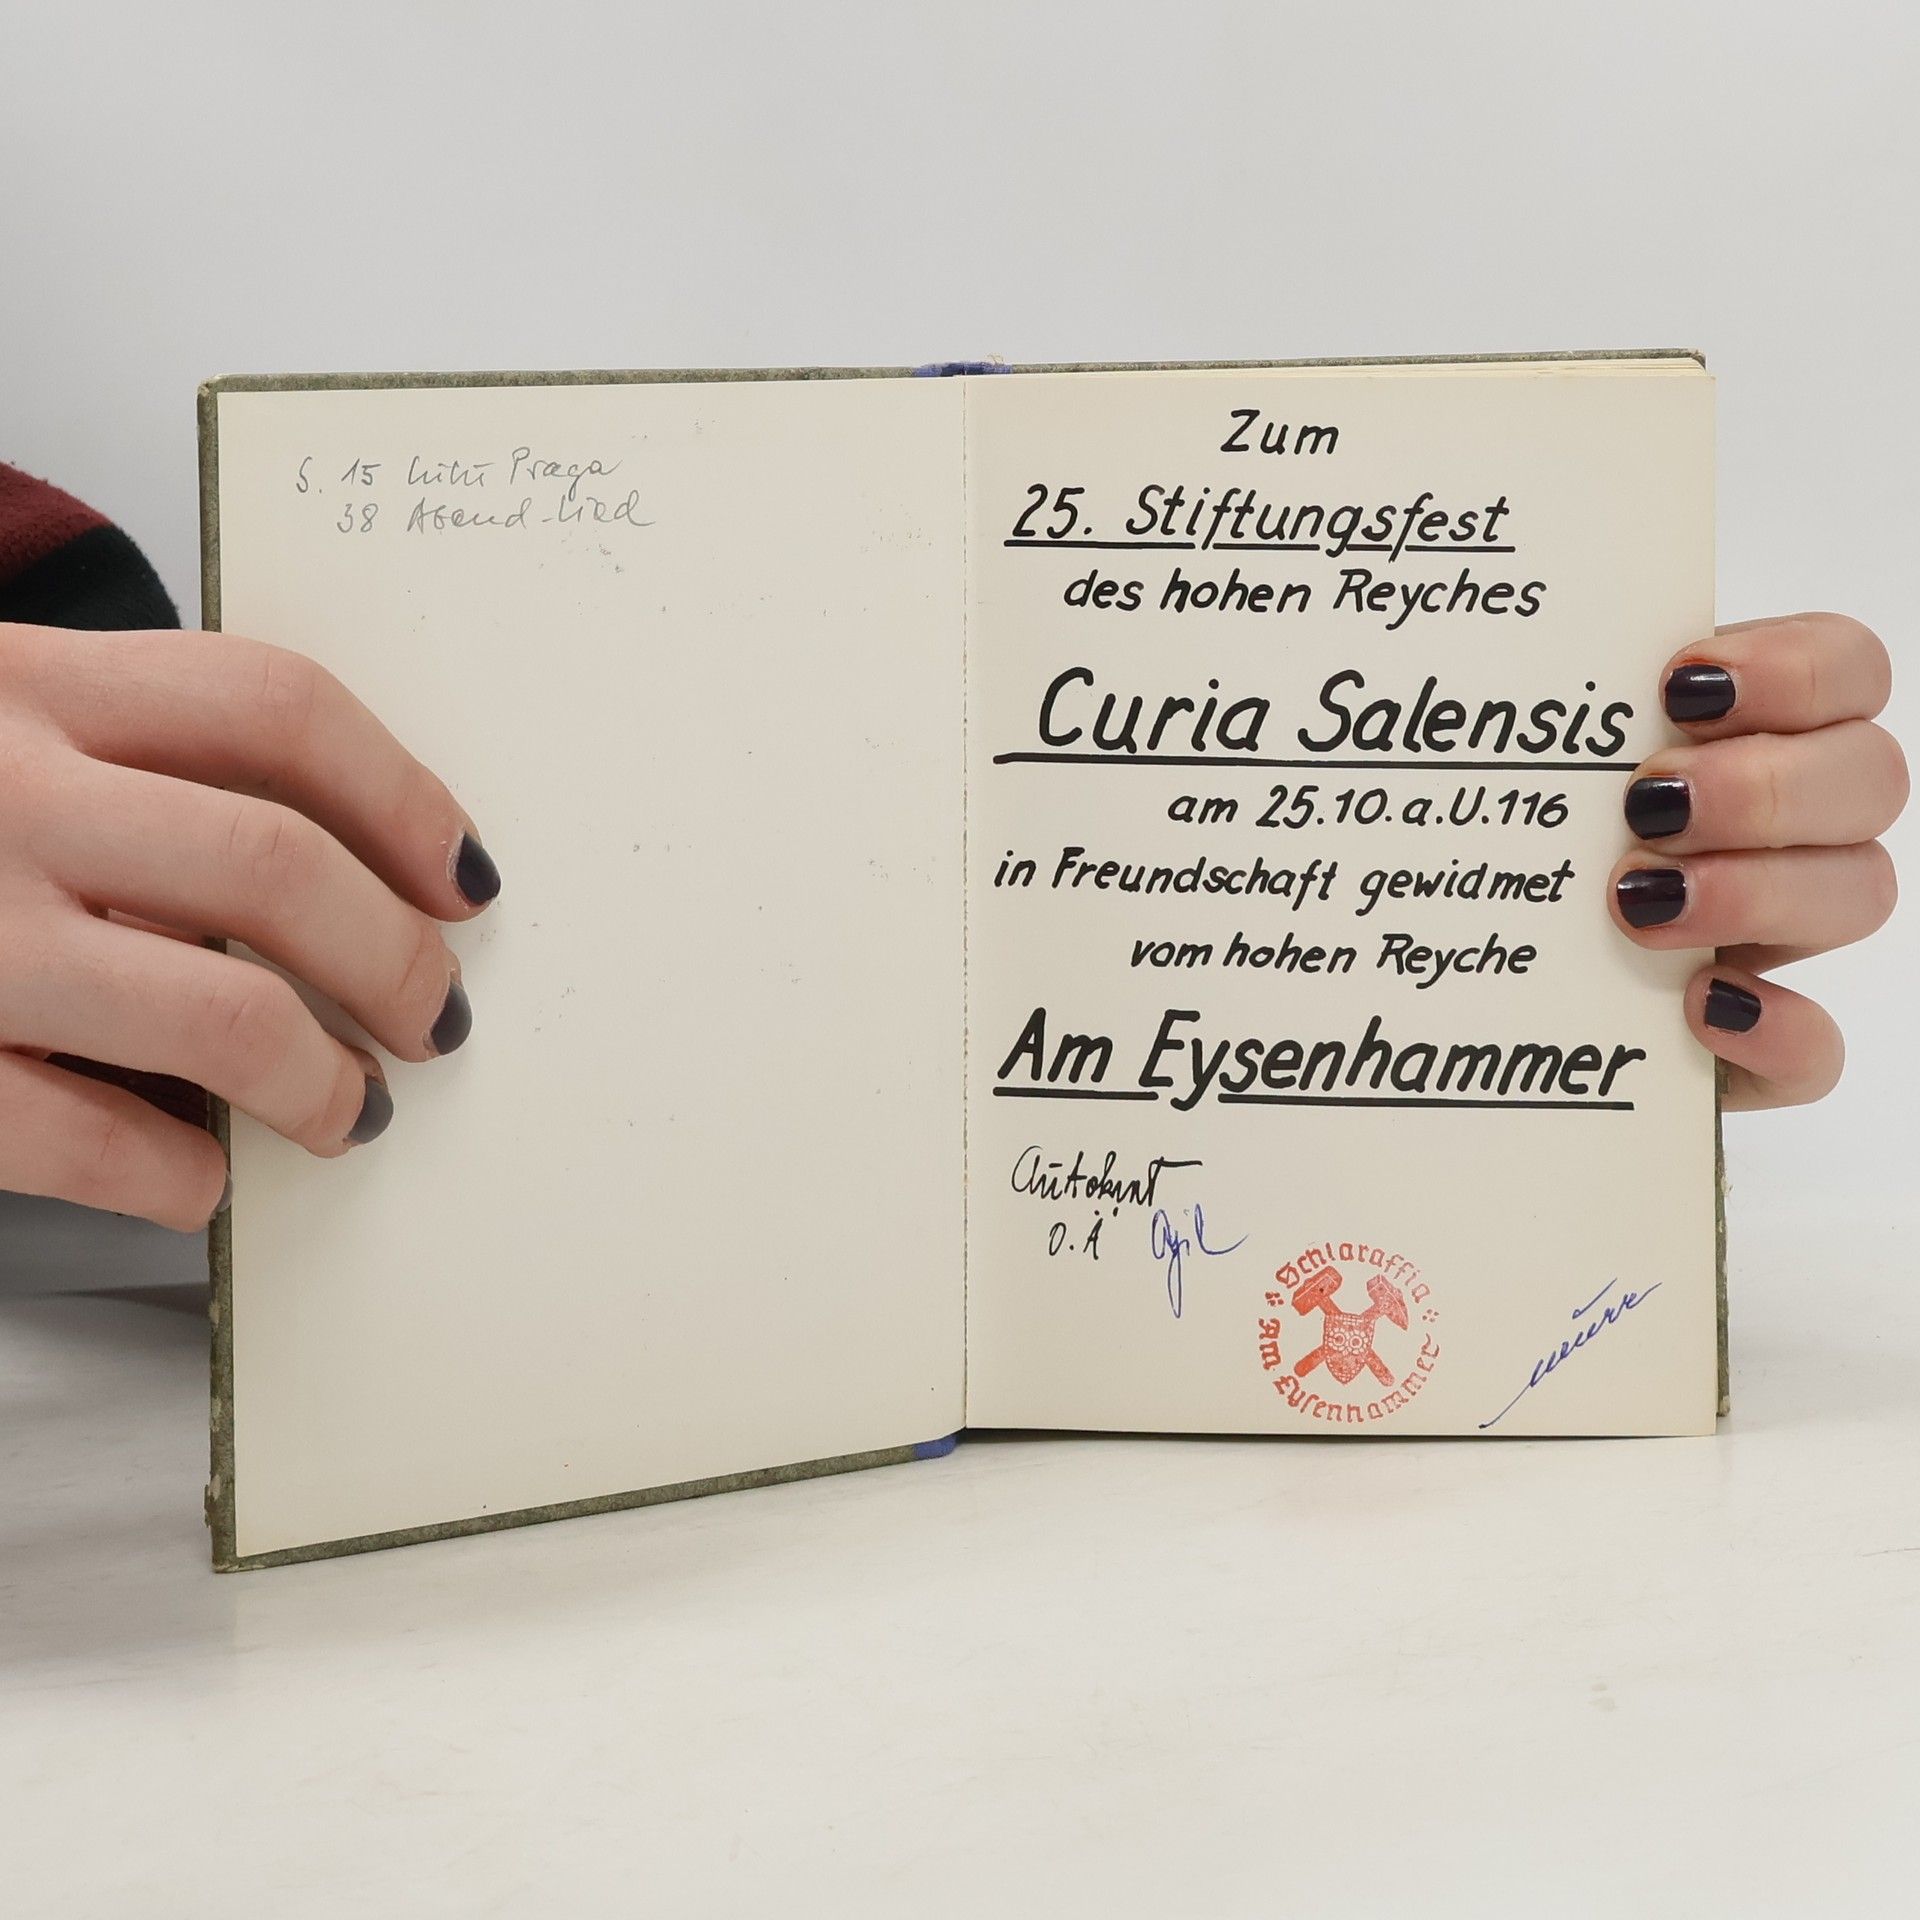 S. 15 Lulu Praga
38 Abend-Lied
Zum
25. Stiftungsfest
des hohen Reyches
Curia Salensis
am 25.10.a.U.116
in Freundschaft gewidmet
vom hohen Reyche
Am Eysenhammer
O.Ä
Schlaraffia
Am Eysenhammer